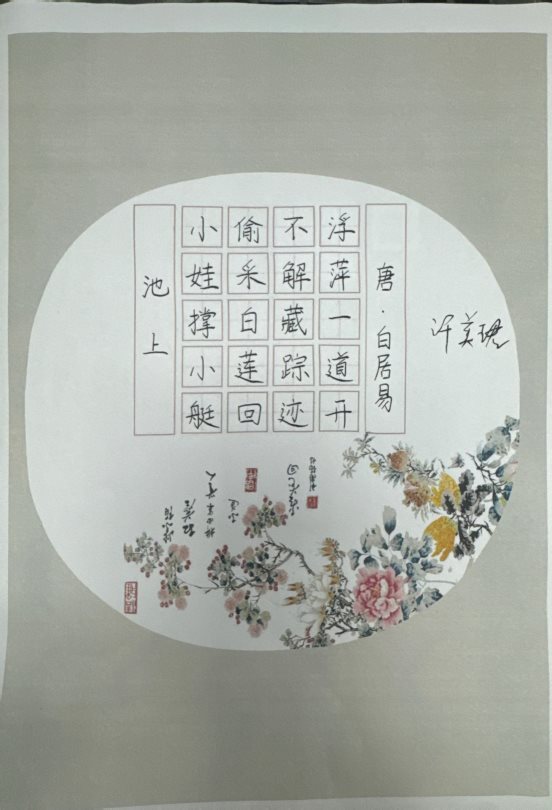 池上
小娃撑小艇
偷采白莲回
不解藏踪迹
浮萍一道开
唐·白居易